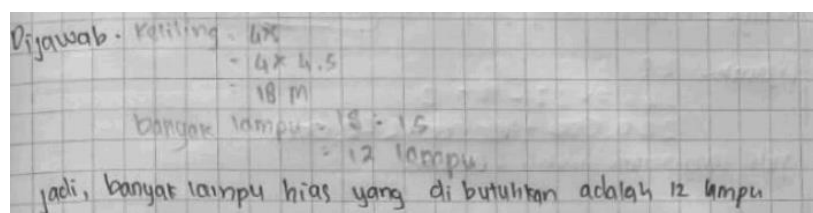 Dijawab. Keliling = 4s
= 4 x 4.5
= 18 m
banyak lampu = 18 : 15
= 12 lampu
jadi, banyak lampu hias yang di butuhkan adalah 12 lampu